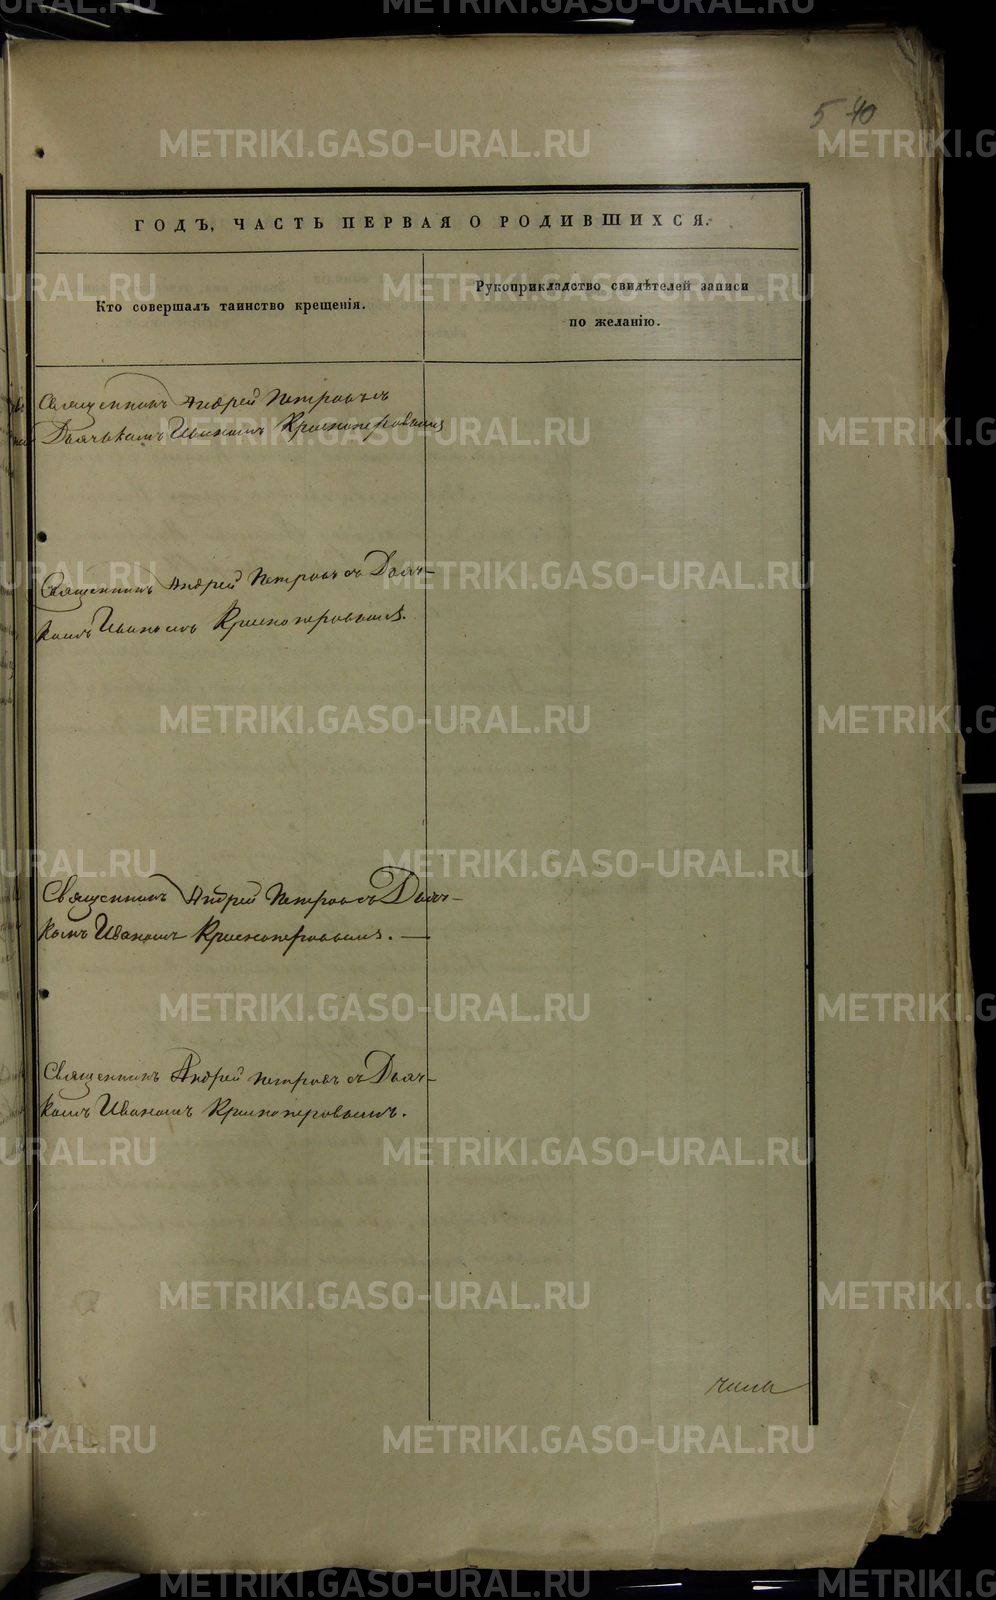 540
ГОДЪ, ЧАСТЬ ПЕРВАЯ О РОДИВШИХСЯ.
Кто совершалъ таинство крещенія.
Рукоприкладство свидѣтелей записи
по желанію.
Священникъ Андрей Петровъ съ
Дьячькомъ Иваномъ Красноперовымъ
Священникъ Андрей Петровъ съ Дьяч-
комъ Иваномъ Красноперовымъ.
Священникъ Андрей Петровъ съ Дьяч-
комъ Иваномъ Красноперовымъ. —
Священникъ Андрей Петровъ съ Дьяч-
комъ Иваномъ Красноперовымъ.
METRIKI.GASO-URAL.RU